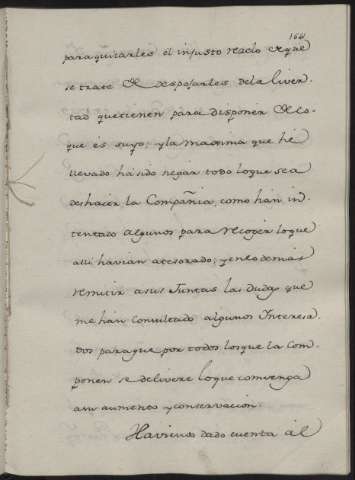 164
para quitarles el injusto reselo de que
se trate de despojarles de la liver-
tad que tienen para disponer de lo
que és suyo; y la maxima que hé
llevado há sido negar todo lo que sea
deshacer la Compañia, como hán in-
tentado algunos para recoger lo que
alli havian atesorado; y en lo demás
remitir a sus Juntas las dudas que
me hán consultado algunos Interesa
dos para que por todos los que la Com-
ponen se delivere lo que convenga
a su aumento y conservacion.
Haviendo dado cuenta ál